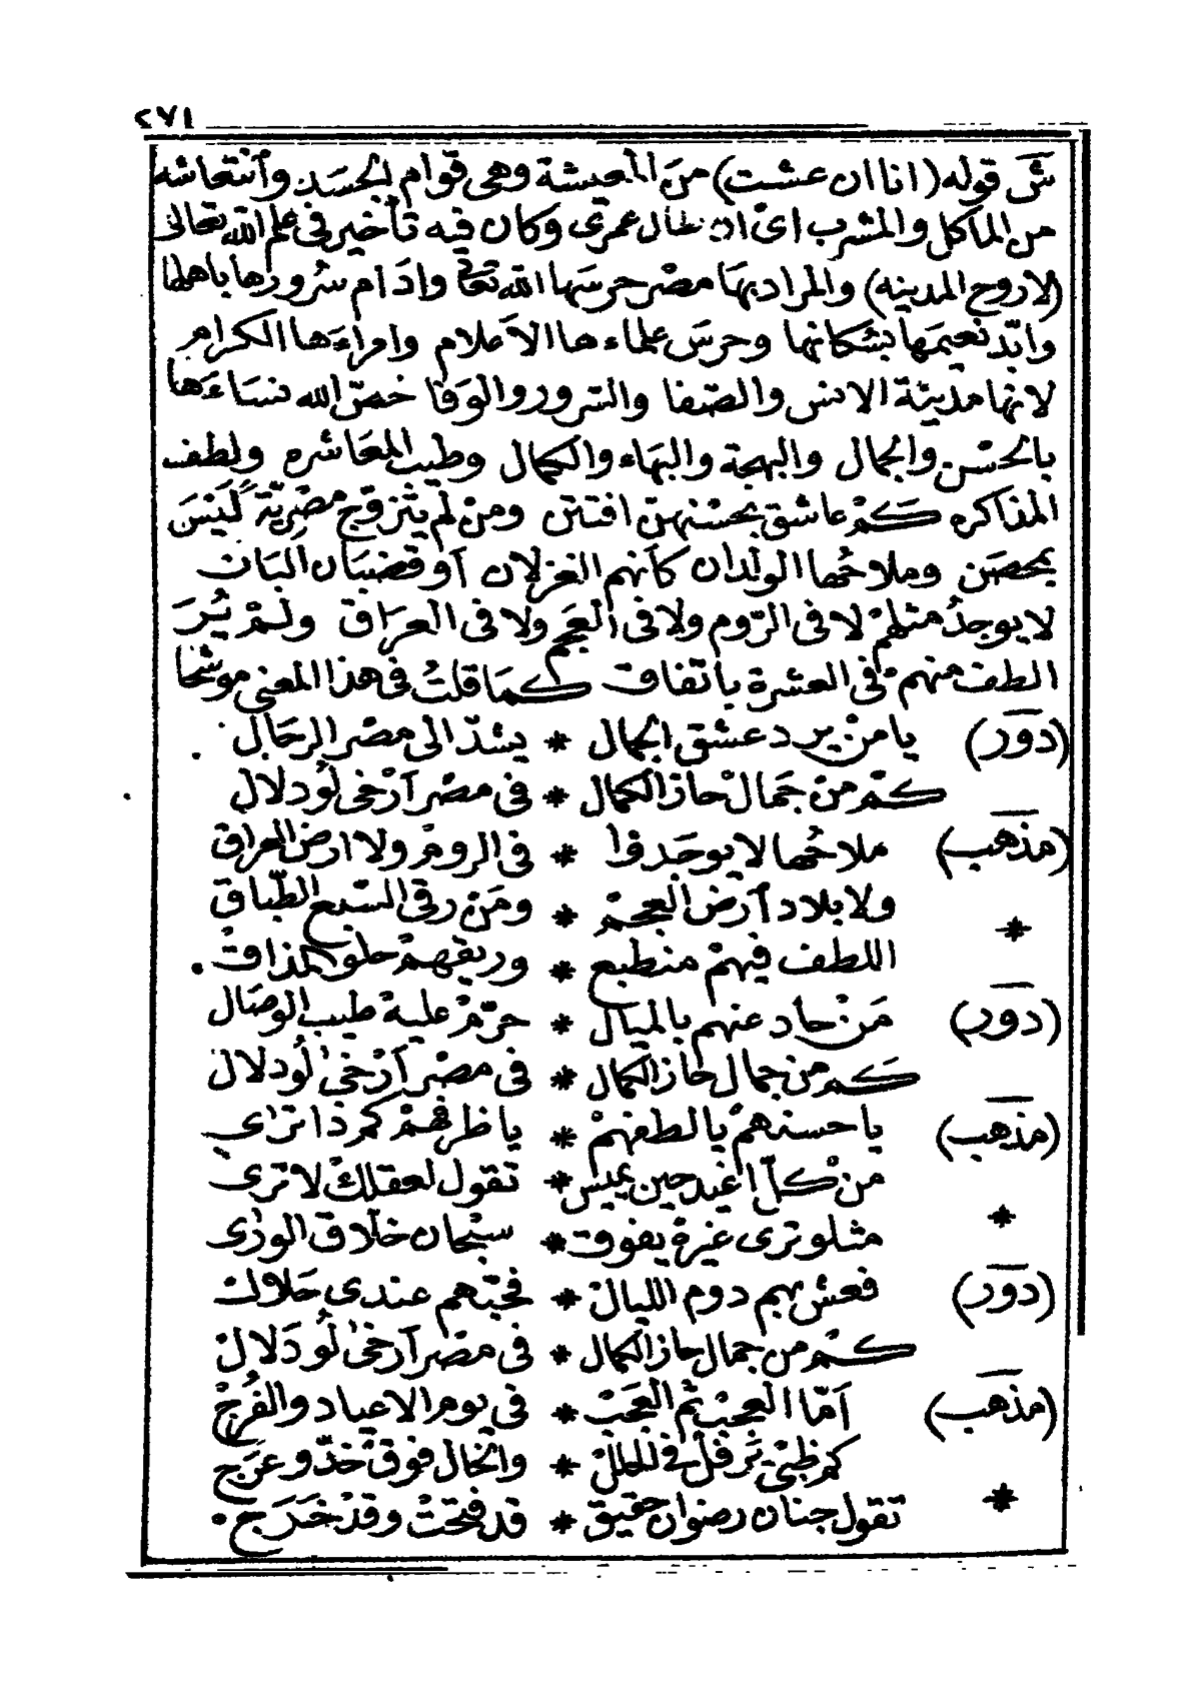 ٢٧١
ش قوله (انا ان عشت) من المعيشة وهى قوام الجسد وانتعاشه
من المأكل والمشرب اى ان طال عمرى وكان فيه تأخير فى علم الله تعالى
(لاروح المدينه) والمراد بها مصر حرسها الله تعالى وادام سرورها باهلها
وابد نعيمها بسكانها وحرس علماءها الاعلام وامراءها الكرام
لانها مدينة الانس والصفا والسرور والوفا خص الله نساءها
بالحسن والجمال والبهجة والبهاء والكمال وطيب المعاشره ولطف
المذاكره كم عاشق بحسنهن افتتن ومن لم يتزوج مصرية ليس
بمحصن وملاحها الولدان كأنهم الغزلان أو قضبان البان
لا يوجد مثلهم لا فى الروم ولا فى العجم ولا فى العراق ولم ير
الطف منهم فى العشرة باتفاق كما قلت فى هذا المعنى موشحا
(دور) يا من يرد عشق الجمال * يشد الى مصر الرحال
كم من جمال حاز الكمال * فى مصر أرخى لو دلال
(مذهب) ملاحها لا يوجدوا * فى الروم ولا ارض العراق
ولا بلاد أرض العجم * ومن رقى السبع الطباق
*
اللطف فيهم منطبع * وريقهم حلو المذاق
(دور) من حاد عنهم بالميال * حرم عليه طيب الوصال
كم من جمال حاز الكمال * فى مصر أرخى لو دلال
(مذهب) يا حسنهم يا لطفهم * يا ظرفهم كم ذا ترى
من كل اغيد حين يميس * تقول لعقلك لا ترى
*
مثلو ترى غيره يفوق * سبحان خلاق الورى
(دور) فعش بهم دوم الليال * فحبهم عندى حلال
كم من جمال حاز الكمال * فى مصر أرخى لو دلال
(مذهب) أما العجب ثم العجب * فى يوم الاعياد والفرج
كم ظبى ترفل فى الحلل * والخال فوق خد وعرج
*
تقول جنان رضوان حقيق * قد فتحت وقد خرج